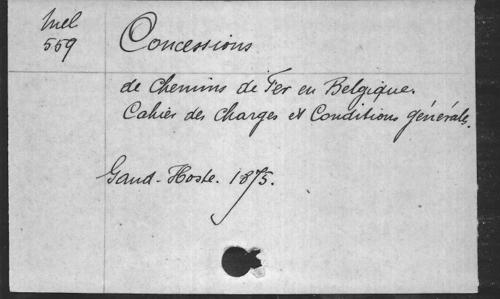 Mel
559
Concessions
de Chemins de Fer en Belgique.
Cahier des Charges et Conditions générales.
Gand-Hoste. 1875.